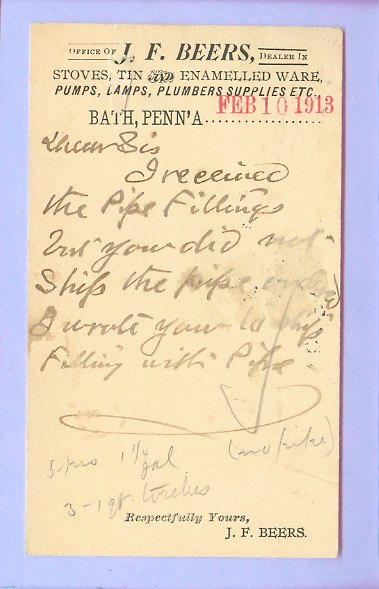 OFFICE OF J. F. BEERS, DEALER IN
STOVES, TIN AND ENAMELLED WARE,
PUMPS, LAMPS, PLUMBERS SUPPLIES ETC.
FEB 10 1913
BATH, PENN'A
Dear Sis
I received
the Pipe Fillings
but you did not
Ship the pipe
I wrote you to ship
Filling with Pipe
(no pipe)
5 pcs 1 1/4 gal
3-1 qt. torches
Respectfully Yours,
J. F. BEERS.